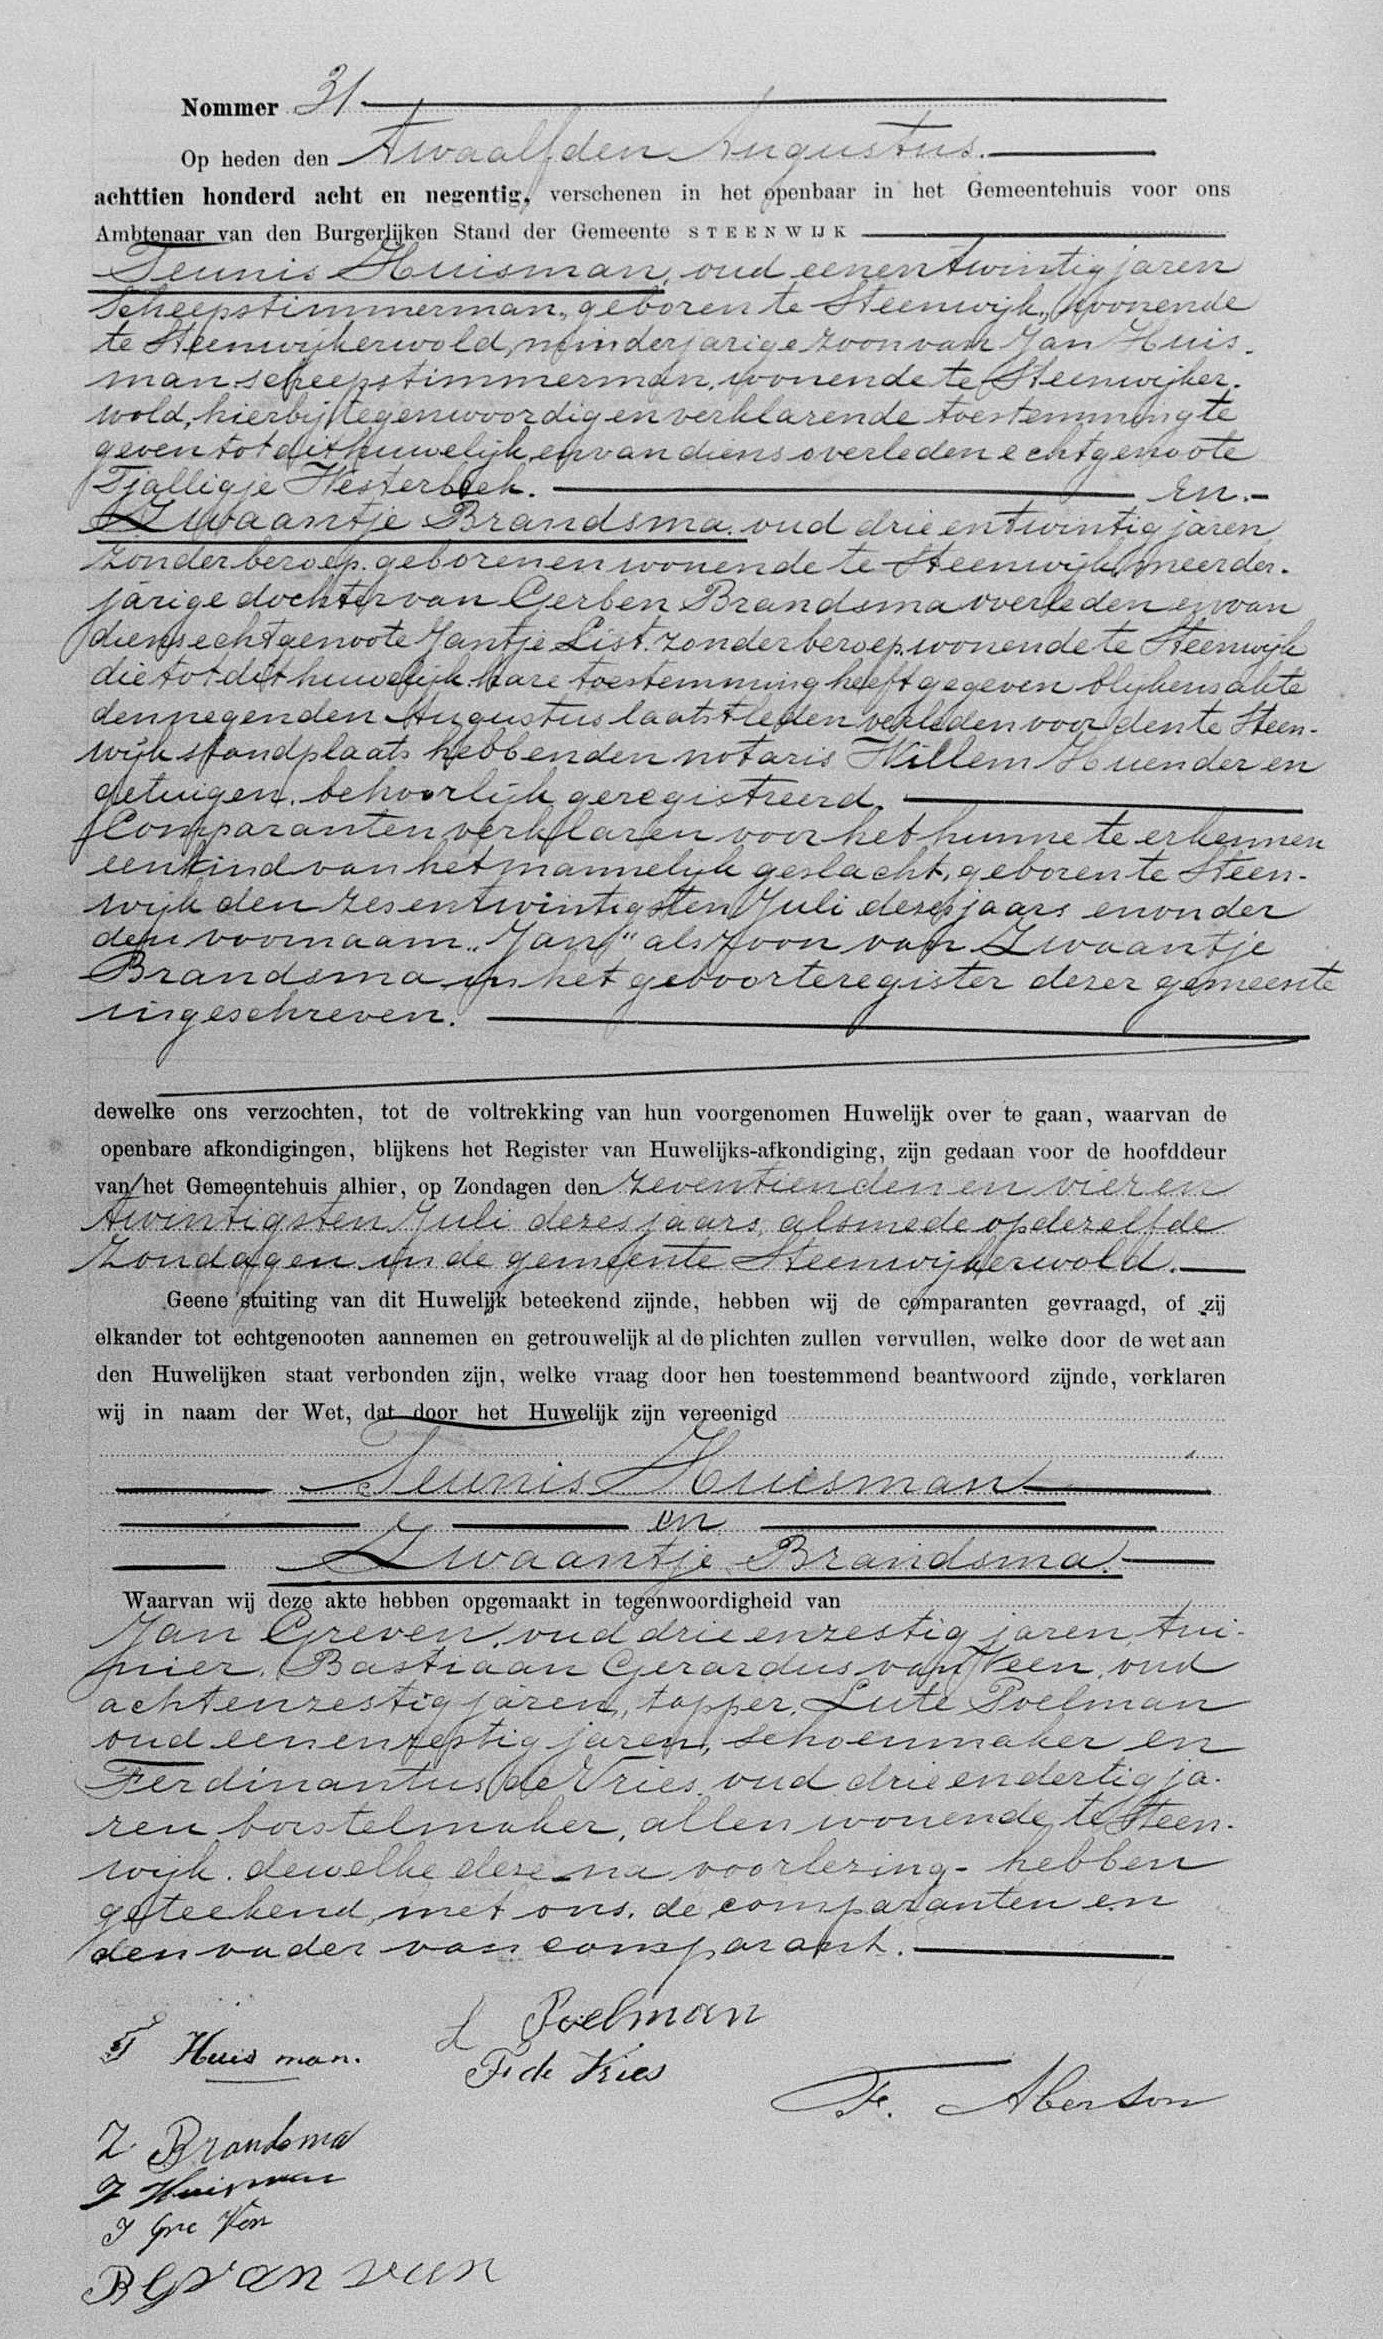 Nommer 31
Op heden den twaalfden Augustus.
achttien honderd acht en negentig, verschenen in het openbaar in het Gemeentehuis voor ons
Ambtenaar van den Burgerlijken Stand der Gemeente STEENWIJK
Teunis Huisman, oud eenentwintig jaren
scheepstimmerman, geboren te Steenwijk, wonende
te Steenwijkerwold, minderjarige zoon van Jan Huis-
man scheepstimmerman, wonende te Steenwijker-
wold, hierbij tegenwoordig en verklarende toestemming te
geven tot dit huwelijk, en van diens overleden echtgenoote
Tjalligje Westerbeek. En.-
Zwaantje Brandsma. oud drieentwintig jaren
zonder beroep. geboren en wonende te Steenwijk, meerder-
jarige dochter van Gerben Brandsma overleden en van
diens echtgenoote Jantje List. zonder beroep. wonende te Steenwijk
die tot dit huwelijk hare toestemming heeft gegeven blijkens akte
den negenden Augustus laatstleden verleden voor den te Steen-
wijk standplaats hebbenden notaris Willem Huender en
getuigen. behoorlijk geregistreerd.
Comparanten verklaren voor het hunne te erkennen
een kind van het mannelijk geslacht, geboren te Steen-
wijk den zesentwintigsten Juli dezes jaars en onder
den voornaam „Jan" als zoon van Zwaantje
Brandsma in het geboorteregister dezer gemeente
ingeschreven.
dewelke ons verzochten, tot de voltrekking van hun voorgenomen Huwelijk over te gaan, waarvan de
openbare afkondigingen, blijkens het Register van Huwelijks-afkondiging, zijn gedaan voor de hoofddeur
van het Gemeentehuis alhier, op Zondagen den zeventienden en vier en
twintigsten Juli dezes jaars, alsmede op dezelfde
Zondagen in de gemeente Steenwijkerwold.
Geene stuiting van dit Huwelijk beteekend zijnde, hebben wij de comparanten gevraagd, of zij
elkander tot echtgenooten aannemen en getrouwelijk al de plichten zullen vervullen, welke door de wet aan
den Huwelijken staat verbonden zijn, welke vraag door hen toestemmend beantwoord zijnde, verklaren
wij in naam der Wet, dat door het Huwelijk zijn vereenigd
Teunis Huisman
en
Zwaantje Brandsma.
Waarvan wij deze akte hebben opgemaakt in tegenwoordigheid van
Jan Greven. oud drieenzestig jaren, tui-
nier. Bastiaan Gerardus van Veen, oud
achtenzestig jaren, tapper, Lute Poelman
oud eenenzestig jaren, schoenmaker en
Ferdinantus de Vries. oud drieendertig ja-
ren borstelmaker, allen wonende te Steen-
wijk. dewelke deze na voorlezing- hebben
geteekend, met ons. de comparanten en
den vader van comparant.
T Huisman.
L Poelman
F de Vries
F. Aberson
Z. Brandsma
J Huisman
J Gre Ven
B G van veen